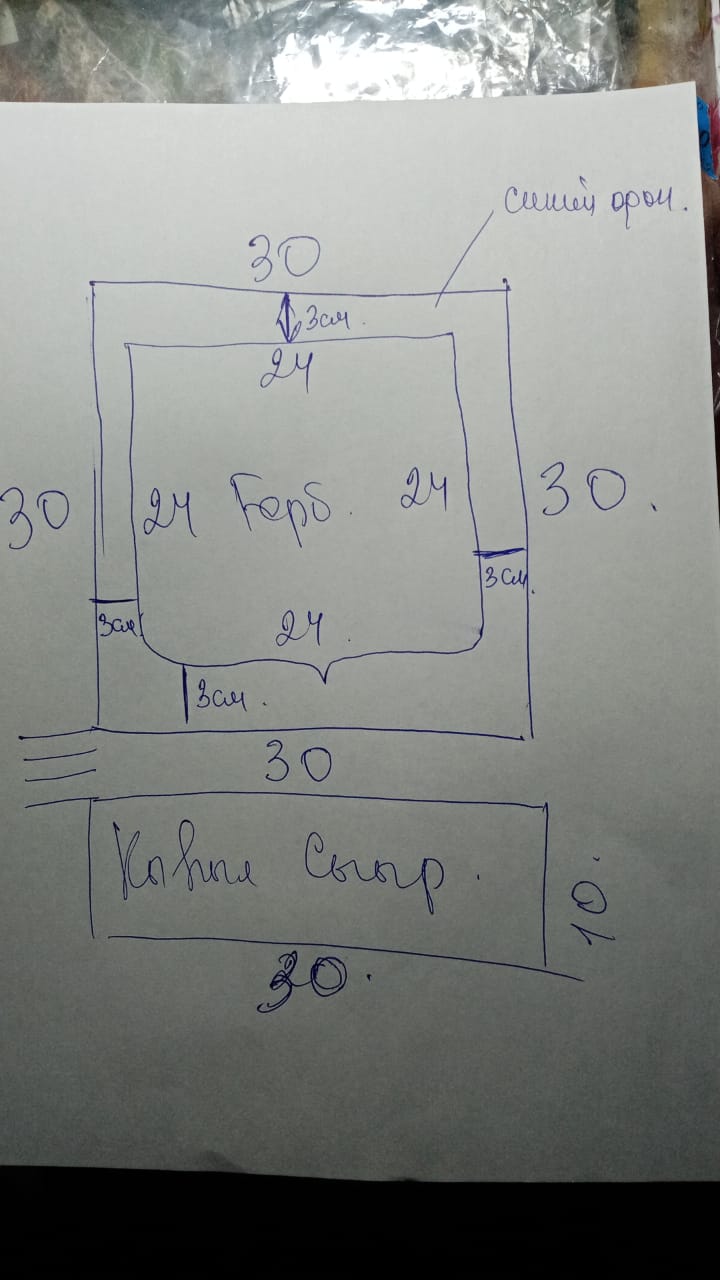 синий орон.
30
3см.
24
30
24 Герб. 24
30.
3см.
3см
24.
3см.
30
Сыыр.
10.
30.